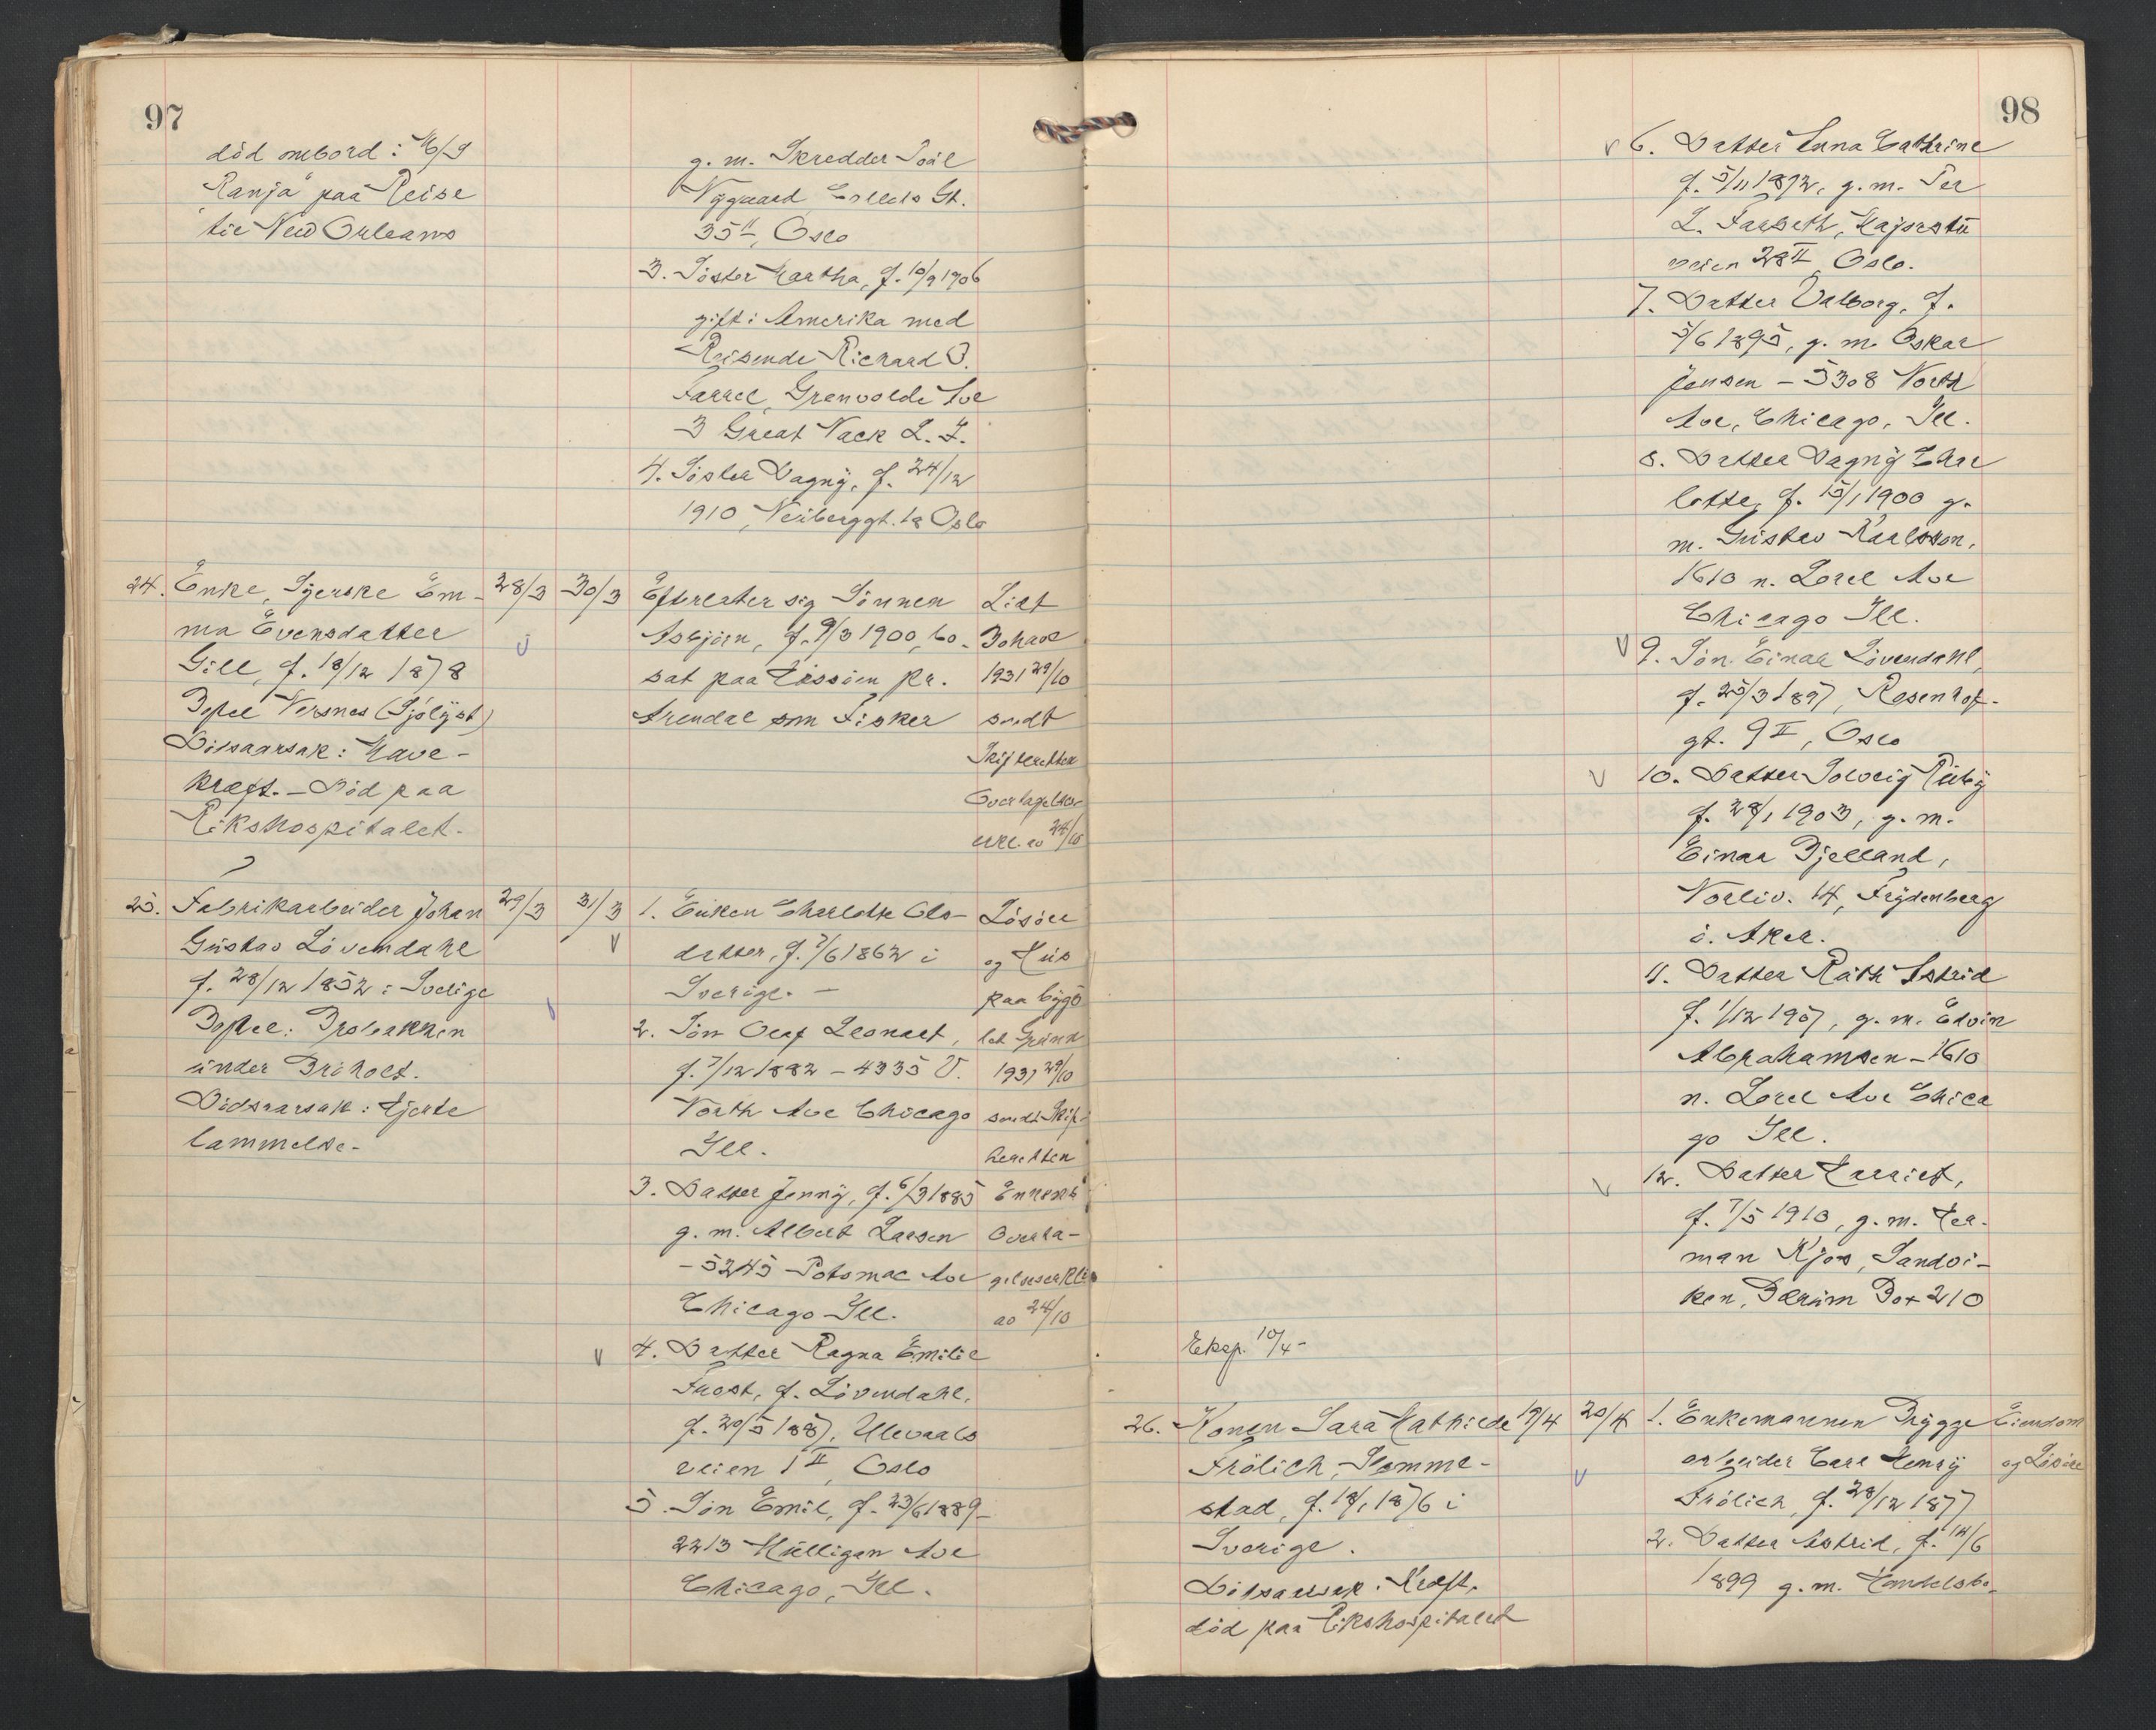 97
död ombord i M/S
"Ranja" paa Reise
til New Orleans
g. m. Skredder Poål
Nygaard
35 II, Oslo
3. Söster Martha, f. 10/9 1906
gift i Amerika med
Reisende Richard O.
Farrel, Grenwolde Ave
3 Great Nack L. I.
4. Söster Dagny, f. 24/12
1910, Neuberggt. 1a Oslo
24. Enke, Syerske Em-
ma Evensdatter
Gill, f. 18/12 1878
Bopæl Versnes (Sjölyst)
Dödsaarsak: Mave-
kræft. - Död paa
Rikshospitalet.
28/3 30/3
Efterlater sig Sönnen
Asbjörn, f. 9/3 1900, bo-
sat paa Tissöen pr.
Arendal som Fisker
Litt
Bohave
1931 29/10
sendt
Skifteretten
Overtagelses-
erkl. av 24/10
25. Fabrikarbeider Johan
Gustav Lövendahl
f. 28/12 1852 i Sverige
Bopæl: Brobakken
under Briholt.
Dödsaarsak: Hjerte
lammelse.
29/3 31/3
1. Enken Charlotte Ols-
datter, f. 7/6 1862 i
Sverige. -
2. Sön Olaf Leonart,
f. 7/12 1882 - 4335 V.
North Ave Chicago
Ill.
3. Datter Jenny, f. 6/3 1885
g. m. Albert Larsen
- 5245 Potomac Ave
Chicago Ill.
4. Datter Ragna Emilie
Frost, f. Lövendahl,
f. 20/5 1887, Ullevaals
veien 1 II, Oslo
5. Sön Emil, f. 23/6 1889 -
2213 Mulligan Ave
Chicago, Ill.
Lösöre
og Hus
paa bygs
let Grunn
1931 29/10
sendt Skif-
teretten
Enkens
Overta-
gelseserkl.
av 24/10
98
6. Datter Anna Cathrine
f. 5/11 1892, g. m. Per
L. Farseth, Majorstu
veien 28 II Oslo.
7. Datter Valborg, f.
5/6 1895, g. m. Oskar
Jensen - 5308 North
Ave, Chicago, Ill.
8. Datter Dagny Char
lotte, f. 15/1 1900 g.
m. Gustav Karlsson,
1610 n. Lorel Ave
Chicago Ill.
9. Sön Einar Lövendahl,
f. 25/3 1897, Rosenhof-
gt. 9 II, Oslo
10. Datter Solveig Ruby
f. 28/1 1903, g. m.
Einar Bjelland,
Norliv. 14, Frydenberg
ö. Aker.
11. Datter Ruth Astrid
f. 1/12 1907, g. m. Edvin
Abrahamsen - 1610
n. Lorel Ave Chica
go Ill.
12. Datter Harriet,
f. 7/5 1910, g. m. Her-
man Kjos, Sandvi-
ken, Bærum Box 210
Eksp. 10/4 -
26. Konen Sara Mathilde
Frölich, Slemme-
stad, f. 18/1 1876 i
Sverige.
Dödsaarsak: Kræft.
död paa Rikshospitalet
19/4 20/4
1. Enkemannen Brygge
arbeider Carl Henry
Frölich, f. 28/12 1877
2. Datter Astrid, f. 14/6
1899 g. m. Handelsbe-
Eiendom
og Lösöre